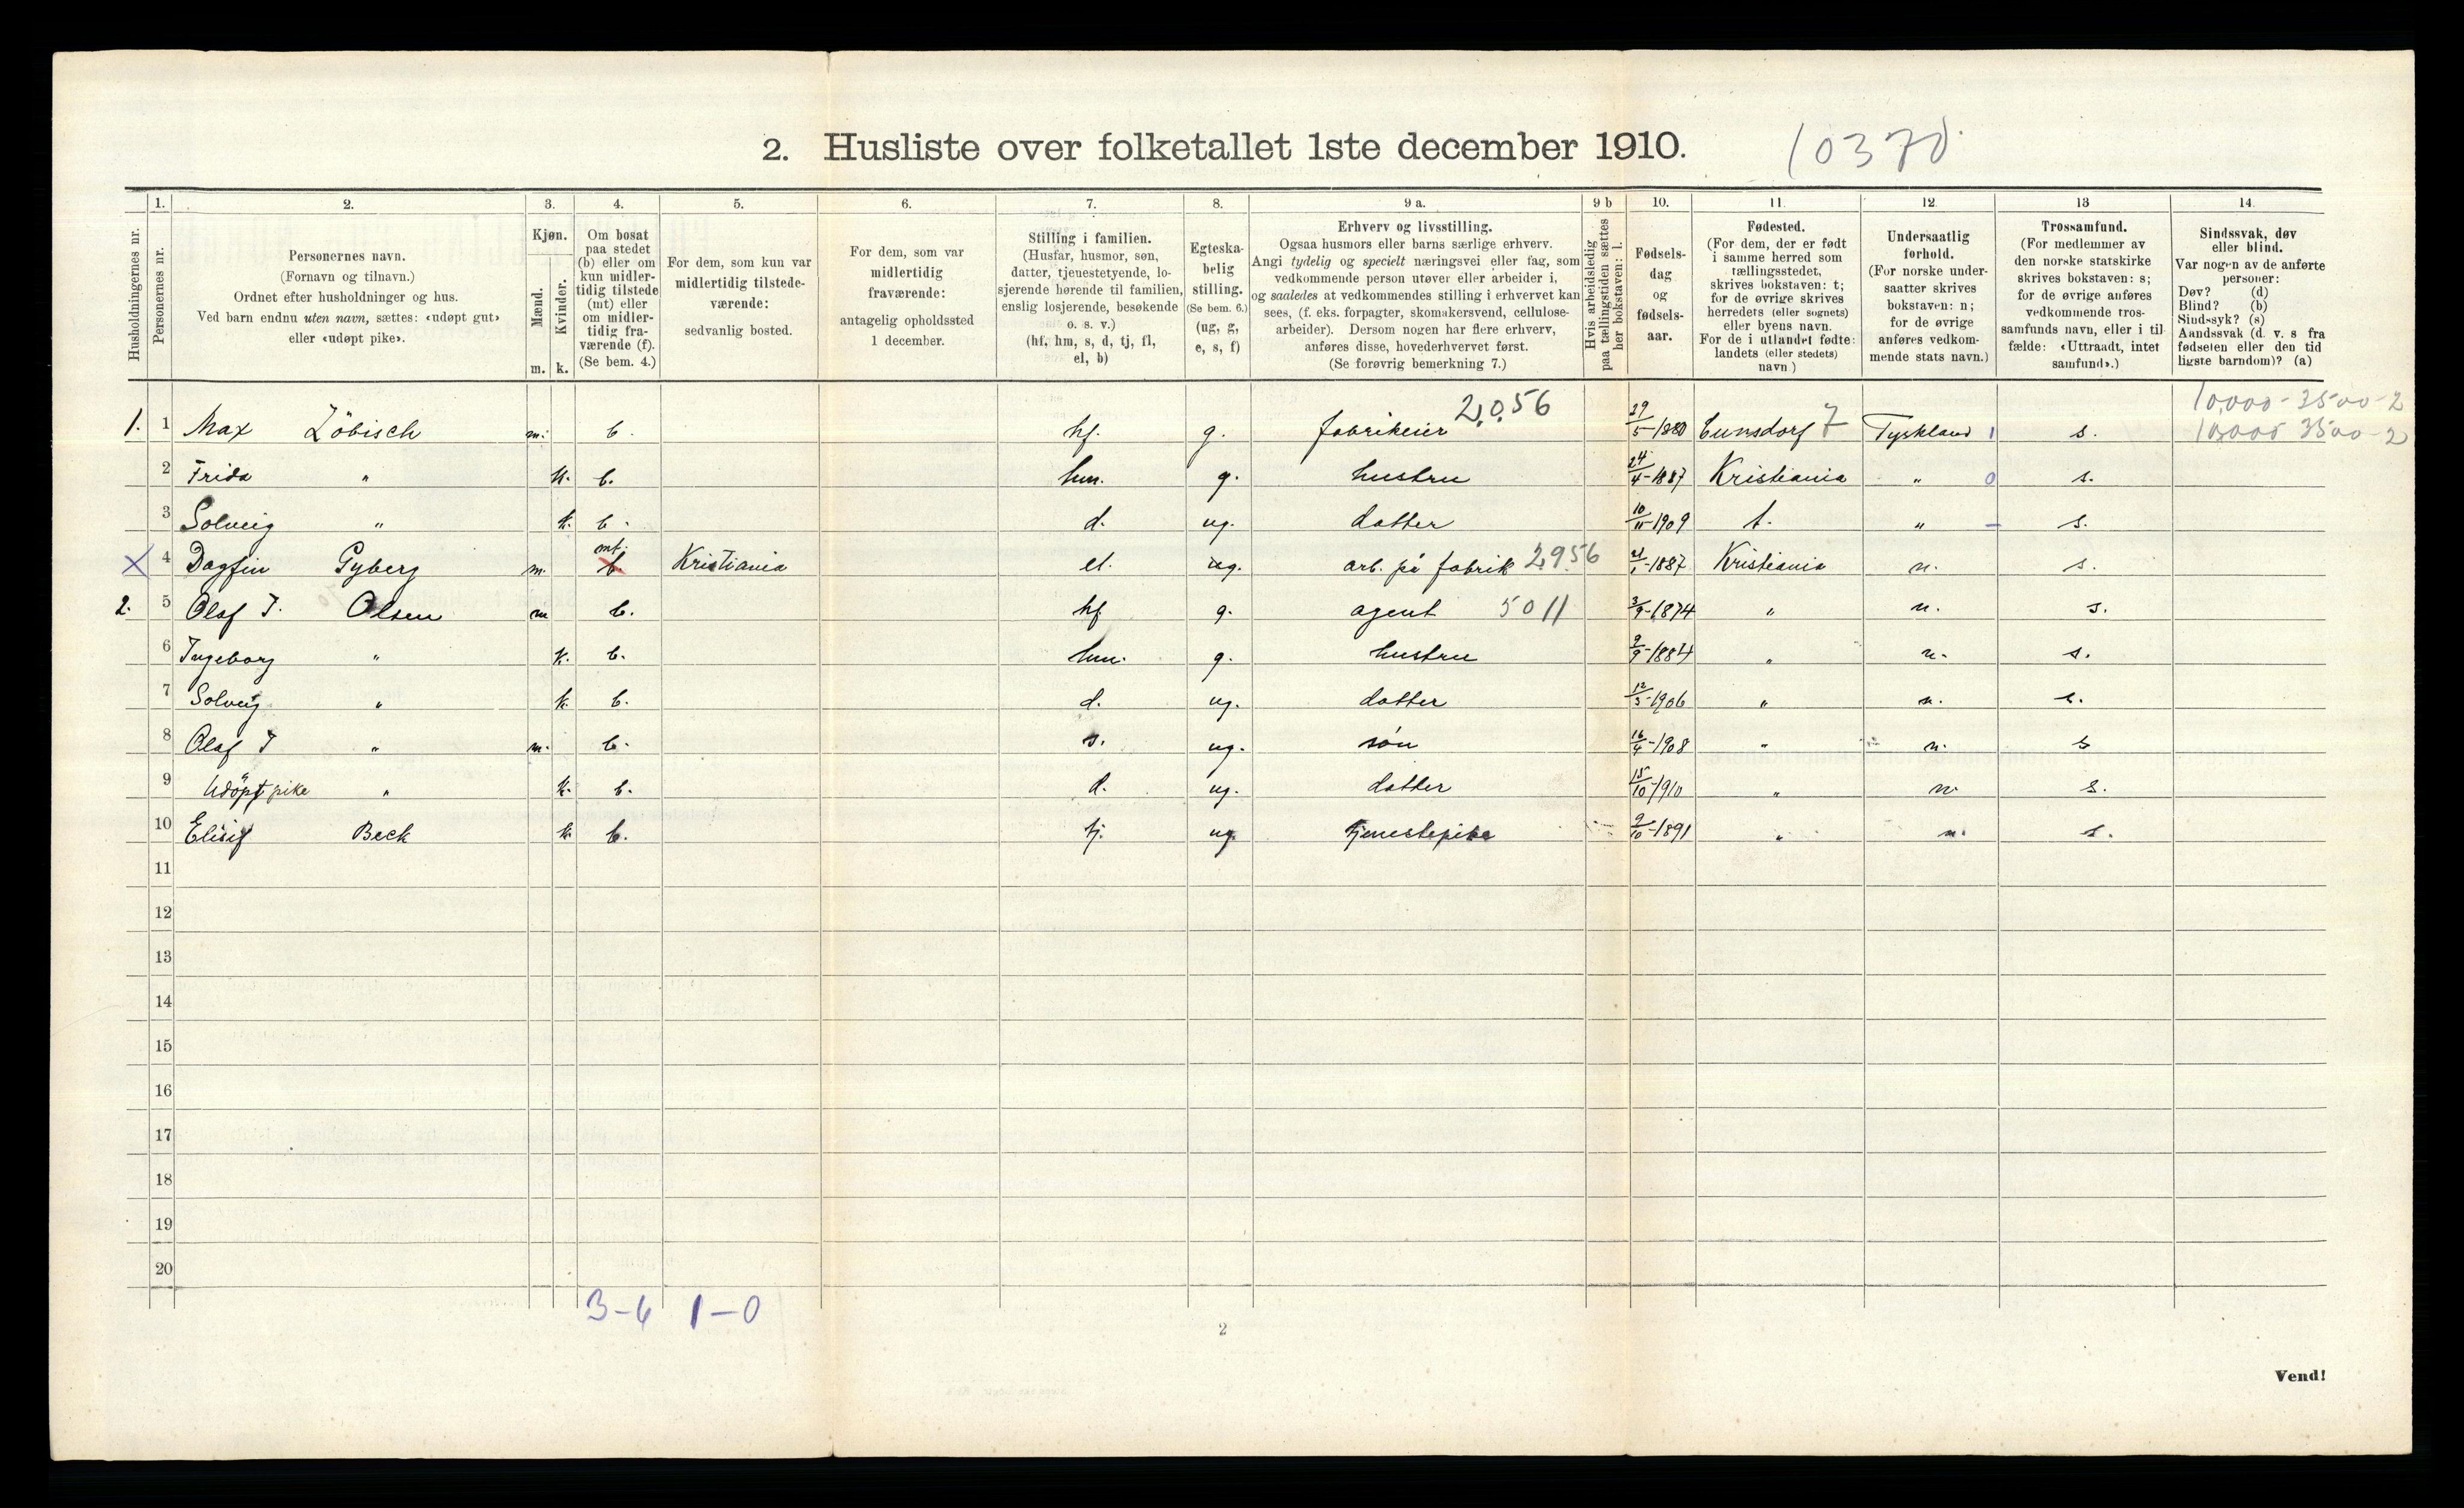 2. Husliste over folketallet 1ste december 1910. 10370
1. 2. 3. 4. 5. 6. 7. 8. 9 a. 9 b 10. 11. 12. 13 14.
Husholdningernes nr.
Personernes nr.
Personernes navn.
(Fornavn og tilnavn.)
Ordnet efter husholdninger og hus.
Ved barn endnu uten navn, sættes: «udøpt gut»
eller «udøpt pike».
Kjøn.
Mænd.
Kvinder.
m. k.
Om bosat
paa stedet
(b) eller om
kun midler-
tidig tilstede
(mt) eller
om midler-
tidig fra-
værende (f).
(Se bem. 4.)
For dem, som kun var
midlertidig tilstede-
værende:
sedvanlig bosted.
For dem, som var
midlertidig
fraværende:
antagelig opholdssted
1 december.
Stilling i familien.
(Husfar, husmor, søn,
datter, tjenestetyende, lo-
sjerende hørende til familien,
enslig losjerende, besøkende
o. s. v.)
(hf, hm, s, d, tj, fl,
el, b)
Egteska-
belig
stilling.
(Se bem. 6.)
(ug, g,
e, s, f)
Erhverv og livsstilling.
Ogsaa husmors eller barns særlige erhverv.
Angi tydelig og specielt næringsvei eller fag, som
vedkommende person utøver eller arbeider i,
og saaledes at vedkommendes stilling i erhvervet kan
sees, (f. eks. forpagter, skomakersvend, cellulose-
arbeider). Dersom nogen har flere erhverv,
anføres disse, hovederhvervet først.
(Se forøvrig bemerkning 7.)
Hvis arbeidsledig
paa tællingstiden sættes
her bokstaven: l.
Fødsels-
dag
og
fødsels-
aar.
Fødested.
(For dem, der er født
i samme herred som
tællingsstedet,
skrives bokstaven: t;
for de øvrige skrives
herredets (eller sognets)
eller byens navn.
For de i utlandet fødte:
landets (eller stedets)
navn )
Undersaatlig
forhold.
(For norske under-
saatter skrives
bokstaven: n;
for de øvrige
anføres vedkom-
mende stats navn.)
Trossamfund.
(For medlemmer av
den norske statskirke
skrives bokstaven: s;
for de øvrige anføres
vedkommende tros-
samfunds navn, eller i til
fælde: «Uttraadt, intet
samfund».)
Sindssvak, døv
eller blind.
Var nogen av de anførte
personer:
Døv? (d)
Blind? (b)
Sindssyk? (s)
Aandssvak (d. v. s fra
fødselen eller den tid
ligste barndom)? (a)
2,0,56 10,000-3500-2
1. 1 Max Zöbisch m. b. hf. g. fabrikeier 29/5-1880 Cunsdorf 7 Tyskland 1 s. 10,000 3500-2
2 Frida " k. b. hm. g. hustru 24/4-1887 Kristiania " 0 s.
3 Solveig " k. b. d. ug. datter 10/11-1909 t. " - s.
mt.
X 4 Dagfin Gyberg m. b. Kristiania el. ug. arb. på fabrik 2956 -1887 Kristiania n. s.
2. 5 Olaf J. Olsen m b. hf. g. agent 5011 3/9-1874 " n. s.
6 Ingeborg " k. b. hm. g. hustru 2/9-1884 " n. s.
7 Solveig " k. b. d. ug. datter 12/3-1906 " n. s.
8 Olaf J " m. b. s. ug. søn 16/4-1908 " n. s
9 Udöpt pike " k. b. d. ug. datter 15/10-1910 " n. s.
10 Elisif Beck k. b. tj. ug. tjenestepike 9/10-1891 " n. s.
11
12
13
14
15
16
17
18
19
20
3-6 1-0
2
Vend!